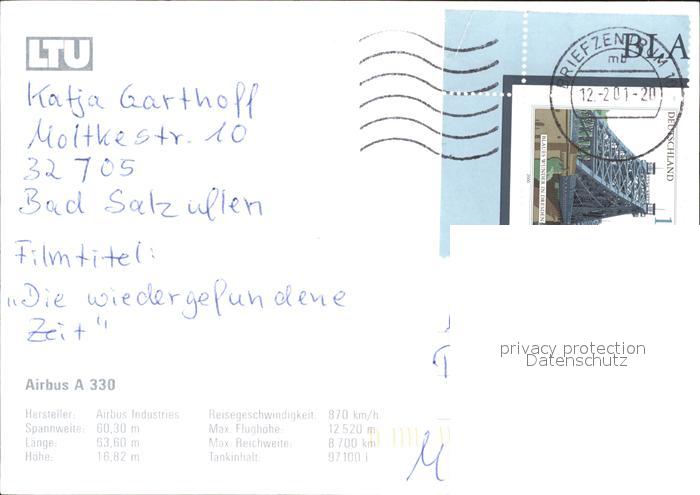 LTU
Katja Garthoff
Moltkestr. 10
32705
Bad Salzuflen
Filmtitel:
„Die wiedergefundene
Zeit"
Airbus A 330
Hersteller: Airbus Industries
Spannweite: 60,30 m
Länge: 63,60 m
Höhe: 16,82 m
Reisegeschwindigkeit: 870 km/h
Max. Flughöhe: 12 520 m
Max. Reichweite: 8 700 km
Tankinhalt: 97100 l
BLA
BRIEFZENTRUM
mb
12.-2.01-20
DEUTSCHLAND
BLAUES WUNDER IN DRESDEN
2000
privacy protection
Datenschutz
M